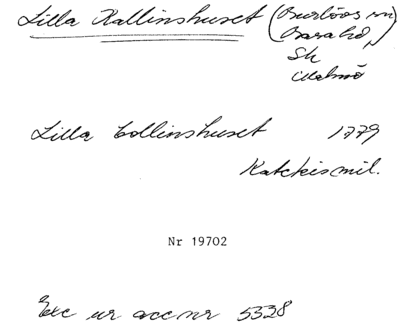 Lilla Kallinshuset (Burlövs sn,
Bara hd,
Sk
Malmö
Lilla Collinshuset 1779
Katekismil.
Nr 19702
Exc ur acc nr 5328